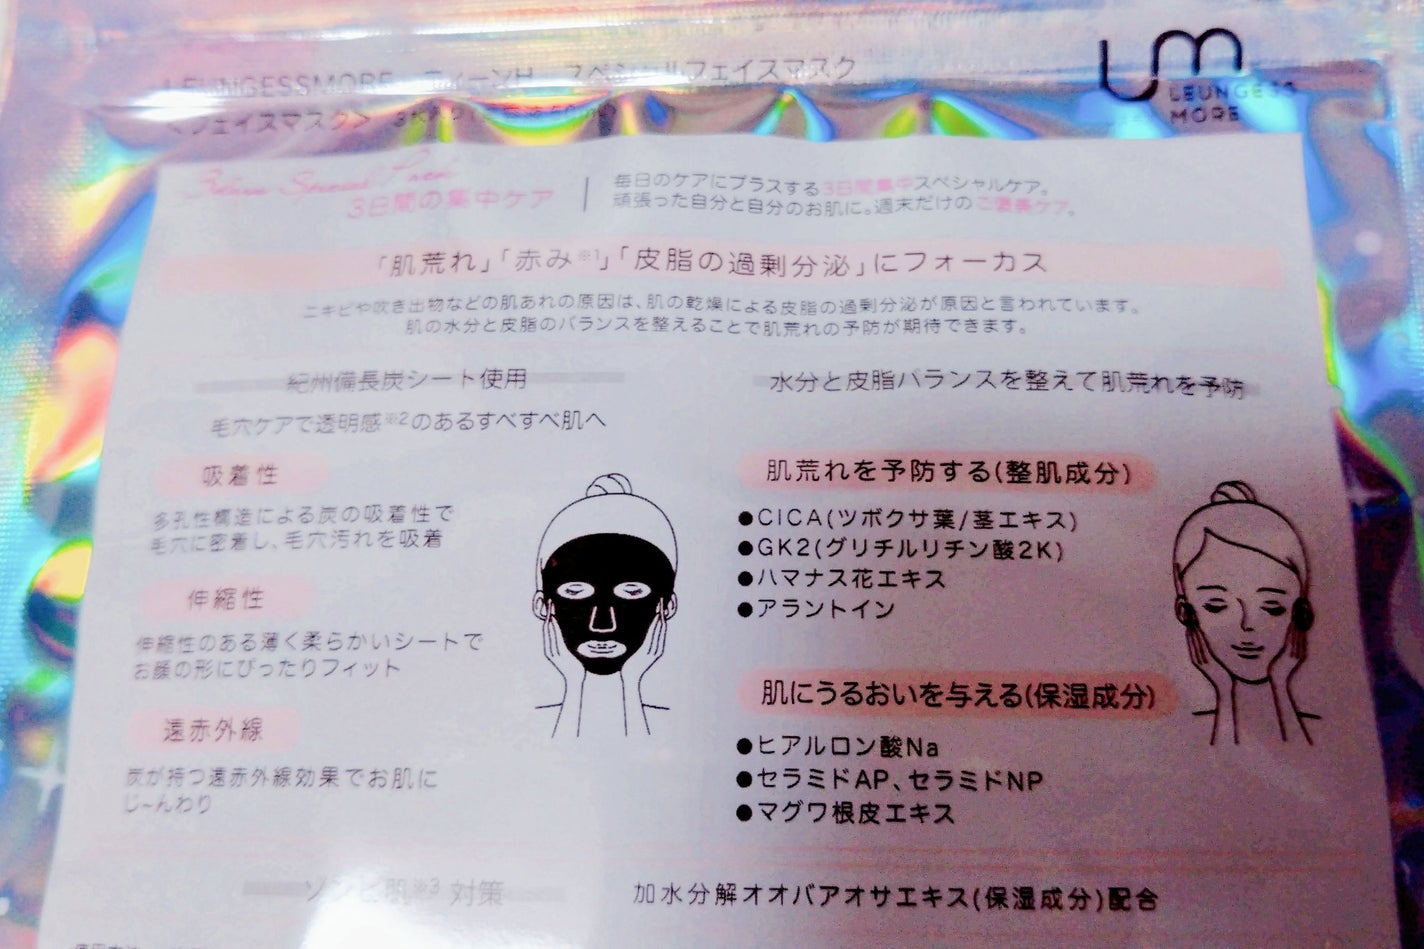 LEUNGESSMORE ティーンH スペシャルフェイスマスク
<フェイスマスク>
LEUNGESS
MORE
3days Special Pack
3日間の集中ケア
毎日のケアにプラスする3日間集中スペシャルケア。
頑張った自分と自分のお肌に。週末だけのご褒美ケア。
「肌荒れ」「赤み※1」「皮脂の過剰分泌」にフォーカス
ニキビや吹き出物などの肌あれの原因は、肌の乾燥による皮脂の過剰分泌が原因と言われています。
肌の水分と皮脂のバランスを整えることで肌荒れの予防が期待できます。
紀州備長炭シート使用
毛穴ケアで透明感※2のあるすべすべ肌へ
吸着性
多孔性構造による炭の吸着性で
毛穴に密着し、毛穴汚れを吸着
伸縮性
伸縮性のある薄く柔らかいシートで
お顔の形にぴったりフィット
遠赤外線
炭が持つ遠赤外線効果でお肌に
じ~んわり
水分と皮脂バランスを整えて肌荒れを予防
肌荒れを予防する(整肌成分)
●CICA(ツボクサ葉/茎エキス)
●GK2(グリチルリチン酸2K)
●ハマナス花エキス
●アラントイン
肌にうるおいを与える(保湿成分)
●ヒアルロン酸Na
●セラミドAP、セラミドNP
●マグワ根皮エキス
ゾンビ肌※3対策
加水分解オオバアオサエキス(保湿成分)配合